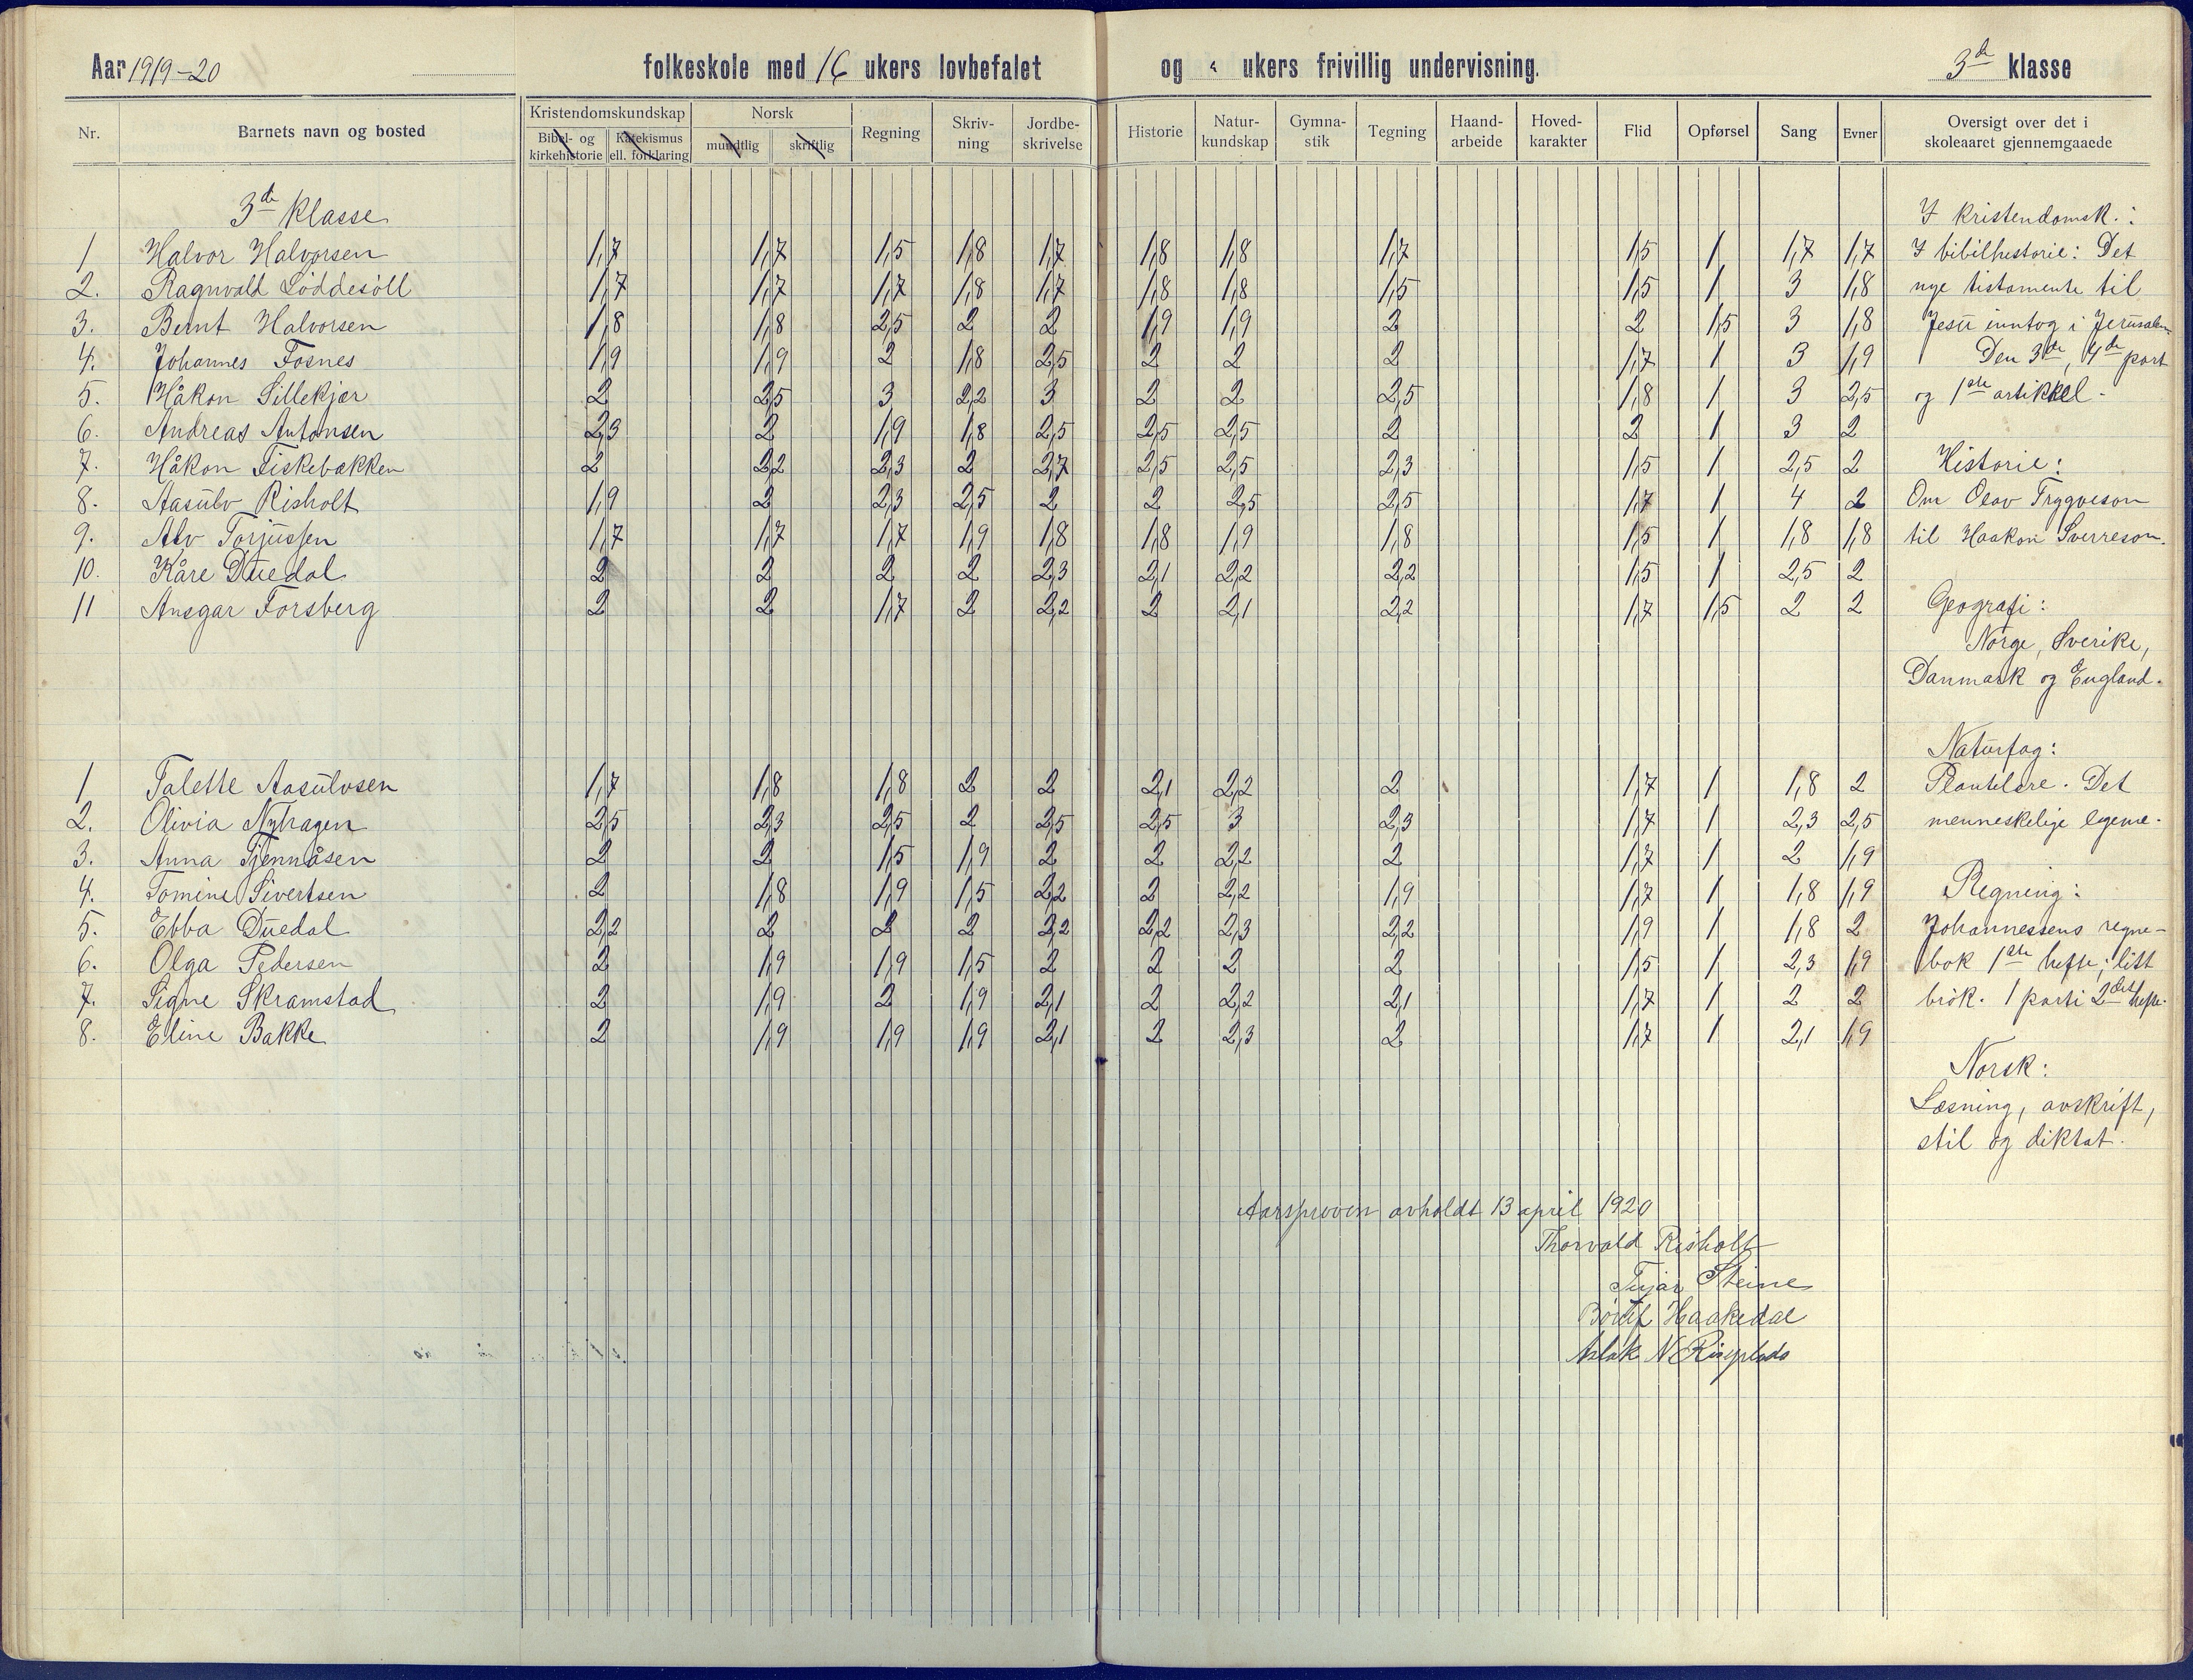 Aar 1919-20 folkeskole med 16 ukers lovbefalet og ukers frivillig undervisning. 3de klasse
Nr. Barnets navn og bosted Kristendomskundskap Bibel- og kirkehistorie Katekismus ell. forklaring Norsk mundtlig skriftlig Regning Skriv-ning Jordbe-skrivelse Historie Natur-kundskap Gymna-stik Tegning Haand-arbeide Hoved-karakter Flid Opførsel Sang Evner Oversigt over det i skoleaaret gjennemgaaede
3de klasse
1 Halvor Halvorsen 1,7 1,7 1,5 1,8 1,7 1,8 1,8 1,7 1,5 1 1,7 1,7
2. Ragnvald Løddesöll 1,7 1,7 1,7 1,8 1,7 1,8 1,8 1,5 1,5 1 3 1,8
3. Bernt Halvorsen 1,8 1,8 2,5 2 2 1,9 1,9 2 2 1,5 3 1,8
4. Johannes Fosnes 1,9 1,9 2 1,8 2,5 2 2 2 1,7 1 3 1,9
5. Håkon Lillekjær 2 2,5 3 2,2 3 2 2 2,5 1,8 1 3 2,5
6. Andreas Antonsen 2,3 2 1,9 1,8 2,5 2,5 2,5 2 2 1 3 2
7. Håkon Fiskebækken 2 2,2 2,3 2 2,7 2,5 2,5 2,3 1,5 1 2,5 2
8. Aasulv Risholt 1,9 2 2,3 2,5 2 2 2,5 2,5 1,7 1 4 2
9. Alv Torjussen 1,7 1,7 1,7 1,9 1,8 1,8 1,9 1,8 1,5 1 1,8 1,8
10. Kåre Duedal 2 2 2 2 2,3 2,1 2,2 2,2 1,5 1 2,5 2
11 Ansgar Forsberg 2 2 1,7 2 2,2 2 2,1 2,2 1,7 1,5 2 2
1 Talette Aasulvsen 1,7 1,8 1,8 2 2 2,1 2,2 2 1,7 1 1,8 2
2. Olivia Nyhagen 2,5 2,3 2,5 2 2,5 2,5 3 2,3 1,7 1 2,3 2,5
3. Anna Tjennåsen 2 2 1,5 1,9 2 2 2,2 2 1,7 1 2 1,9
4. Tomine Sivertsen 2 1,8 1,9 1,5 2,2 2 2,2 1,9 1,7 1 1,8 1,9
5. Ebba Duedal 2,2 2 2 2 2,2 2,2 2,3 2,2 1,9 1 1,8 2
6. Olga Pedersen 2 1,9 1,9 1,5 2 2 2 2 1,5 1 2,3 1,9
7. Signe Skramstad 2 1,9 2 1,9 2,1 2 2,2 2,1 1,7 1 2 2
8. Eline Bakke 2 1,9 1,9 1,9 2,1 2 2,3 2 1,7 1 2,1 1,9
I kristendomsk.:
I bibilhistorie: Det
nye testamente til
Jesu inntog i Jerusalem.
Den 3de, 4de part
og 1ste artikkel.
Historie:
Om Olav Trygveson
til Haakon Sverreson.
Geografi:
Norge, Sverike,
Danmark og England.
Naturfag:
Plantelære. Det
menneskelige legeme.
Regning:
Johannessens regne-
bok 1ste hefte; litt
brök. 1 part i 2det hefte.
Norsk:
Læsning, avskrift,
stil og diktat.
Aarsprøven avholdt 13 april 1920
Thorvald Risholt
Steine
Haakedal
Aslak N Riseplads